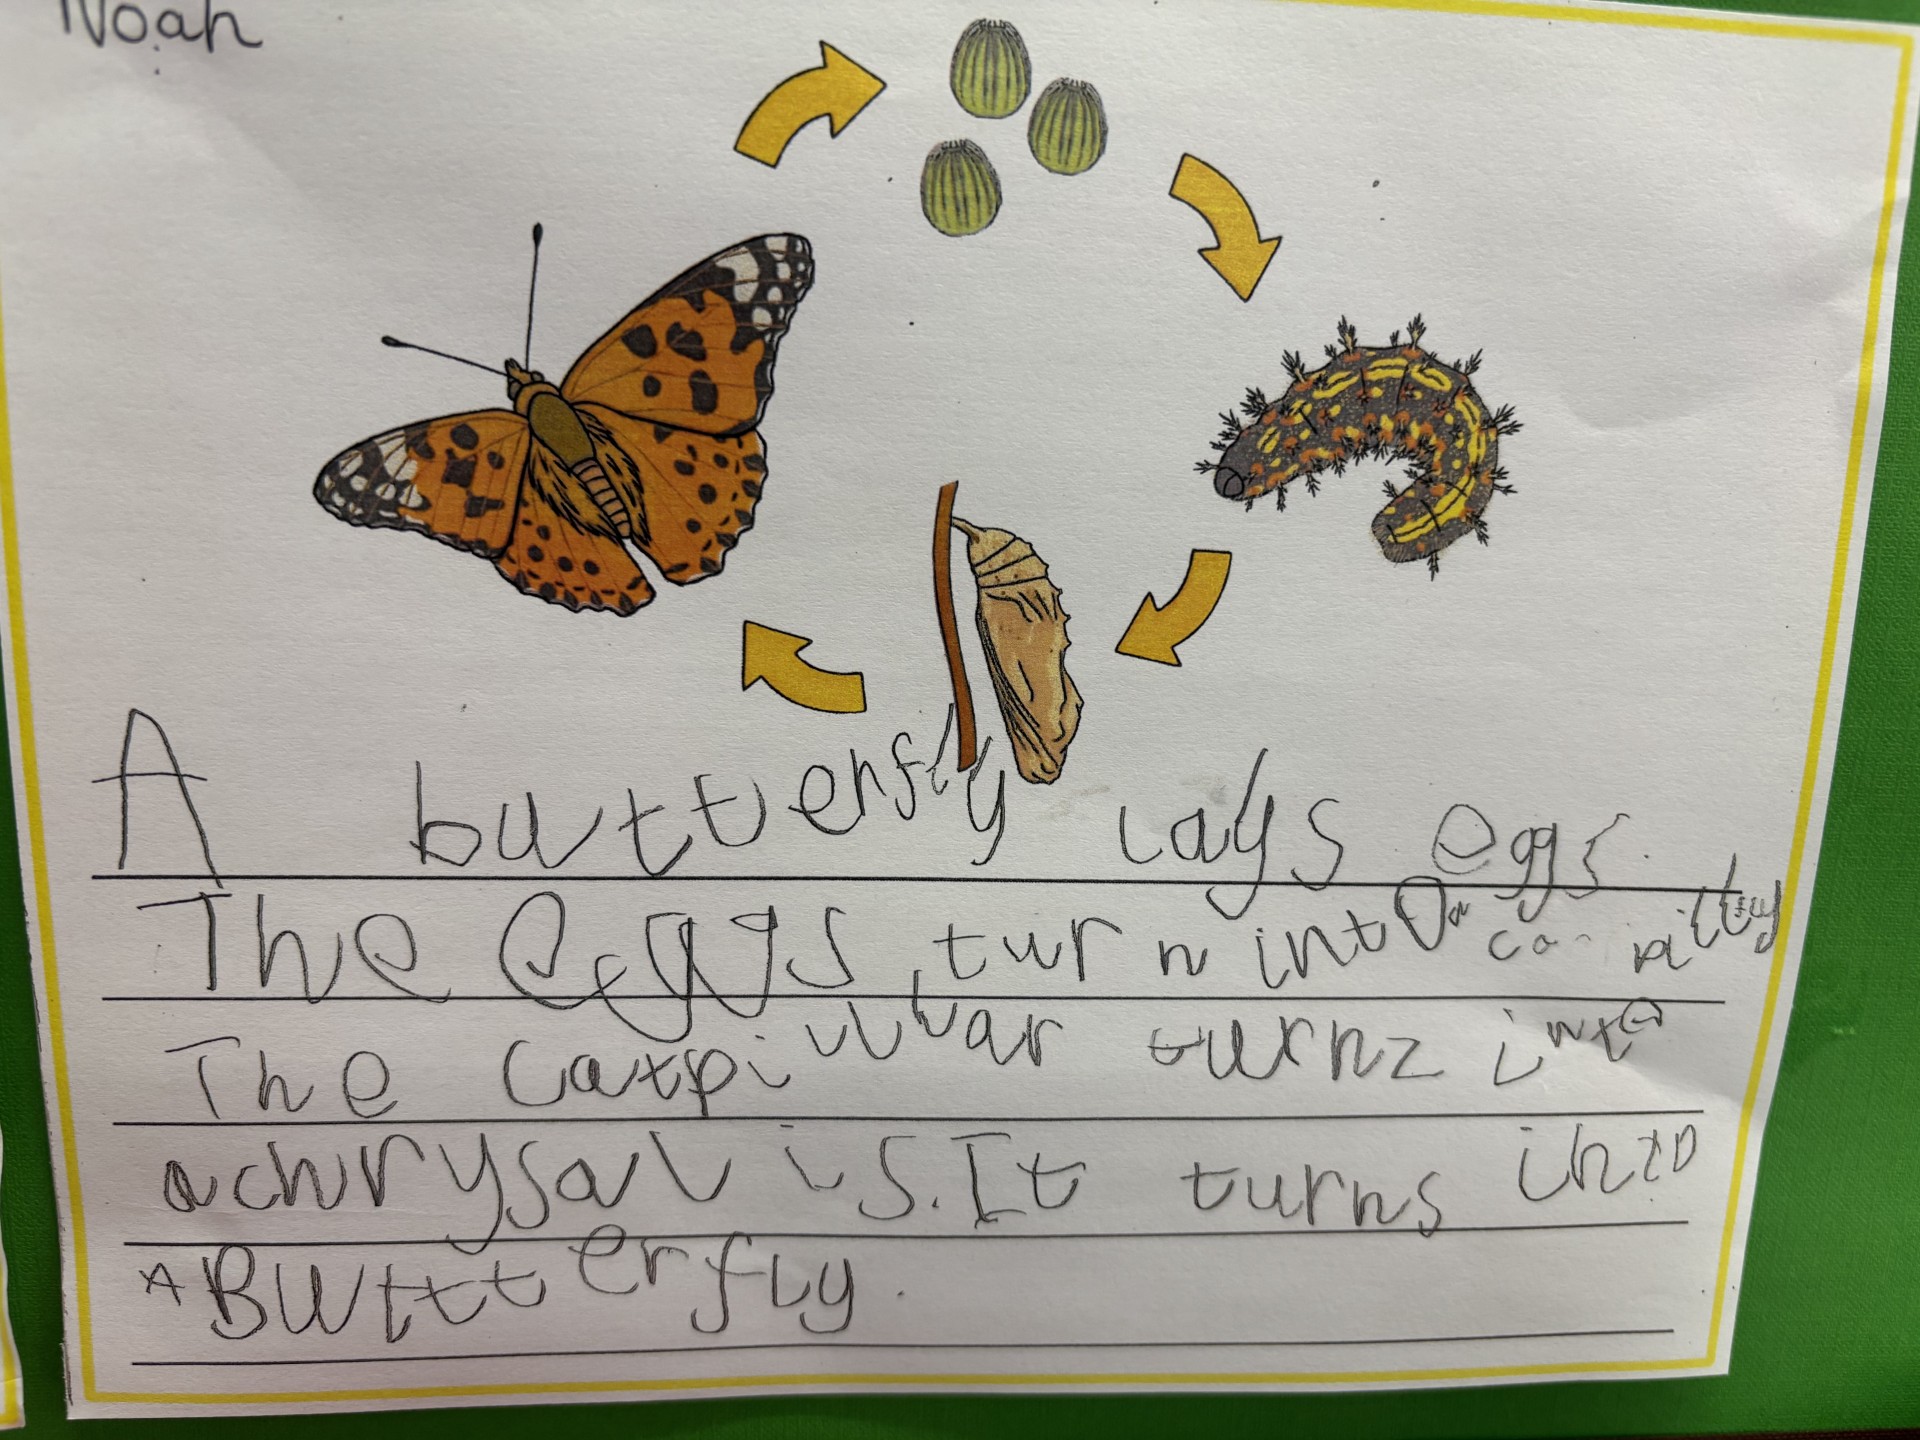 Noah
A butterfly lays eggs.
The eggs turn into a
The catpillar turnz into
a chrysalis. It turns into
A Buttterfly.